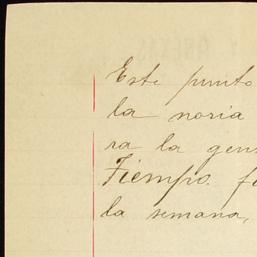 Este punto
la noria
ra la gen
Tiempo. f
la semana,